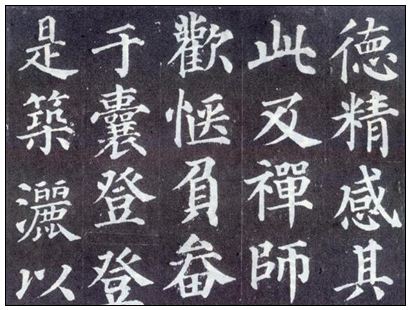 德精感其
此及禪師
歡愜負畚
于囊登登
是築灑以